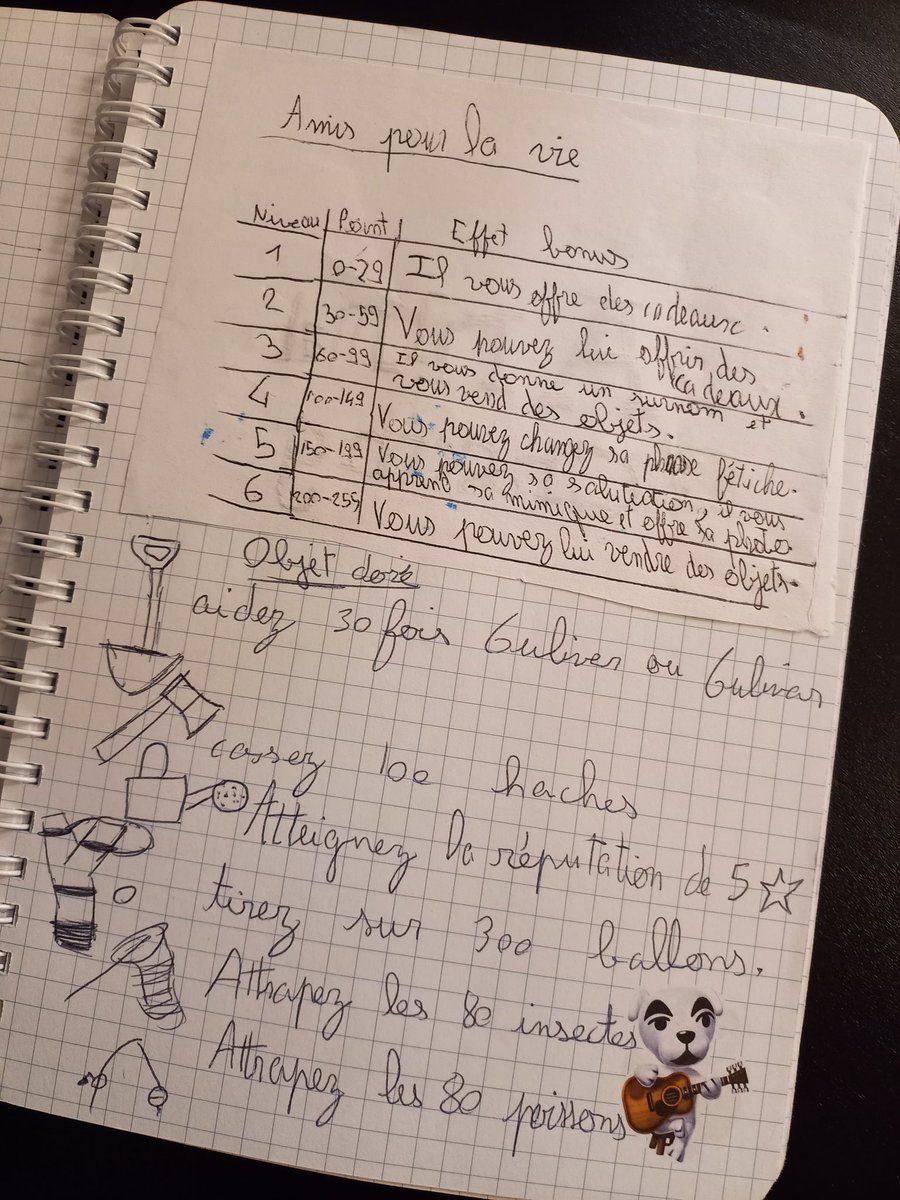 Amis pour la vie
Niveau Point Effet bonus
1 0-29 Il vous offre des cadeaux.
2 30-59 Vous pouvez lui offrir des
cadeaux.
3 60-99 Il vous donne un surnom et
vous vend des objets.
4 100-149 Vous pouvez changez sa phrase fétiche.
5 150-199 Vous pouvez sa salutation, il vous
apprend sa mimique et offre sa photo
6 200-255 Vous pouvez lui vendre des objets.
Objet doré
aidez 30 fois Guliver ou Gulivar
cassez 100 haches
Atteignez la réputation de 5 ☆
tirez sur 300 ballons.
Attrapez les 80 insectes
Attrapez les 80 poissons